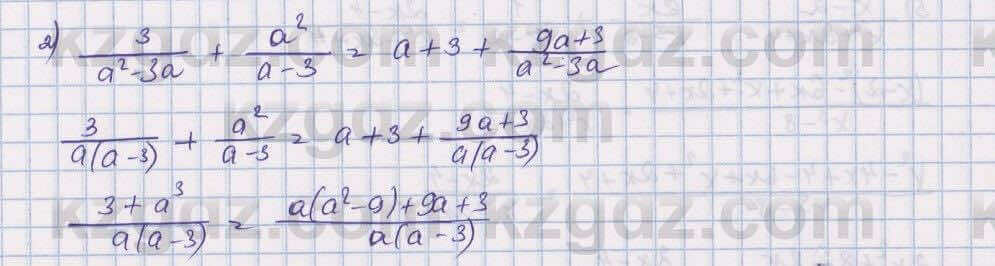 2) 3/(a²-3a) + a²/(a-3) = a+3 + (9a+3)/(a²-3a)
3/(a(a-3)) + a²/(a-3) = a+3 + (9a+3)/(a(a-3))
(3+a³)/(a(a-3)) = (a(a²-9)+9a+3)/(a(a-3))
kzgdz.com